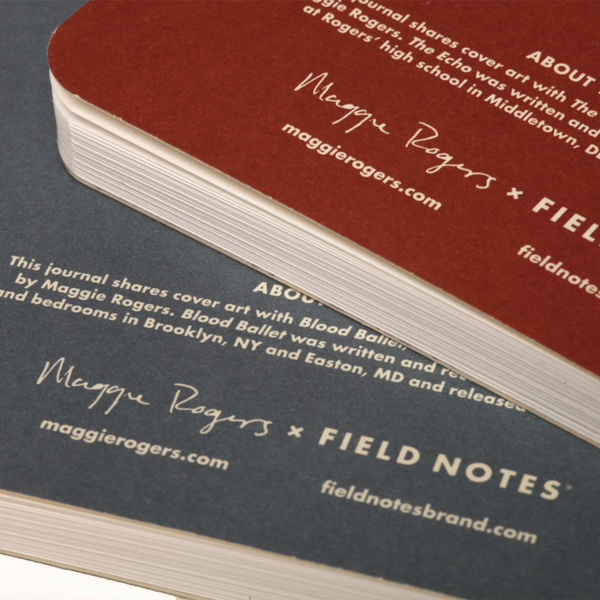 journal shares cover art with The
ggie Rogers. The Echo was written and
at Rogers' high school in Middletown, DE
ABOUT
Maggie Rogers × FIEL
maggierogers.com
fieldnotes
ABOU
This journal shares cover art with Blood Ballet,
by Maggie Rogers. Blood Ballet was written and rec
and bedrooms in Brooklyn, NY and Easton, MD and released
Maggie Rogers × FIELD NOTES
maggierogers.com
fieldnotesbrand.com